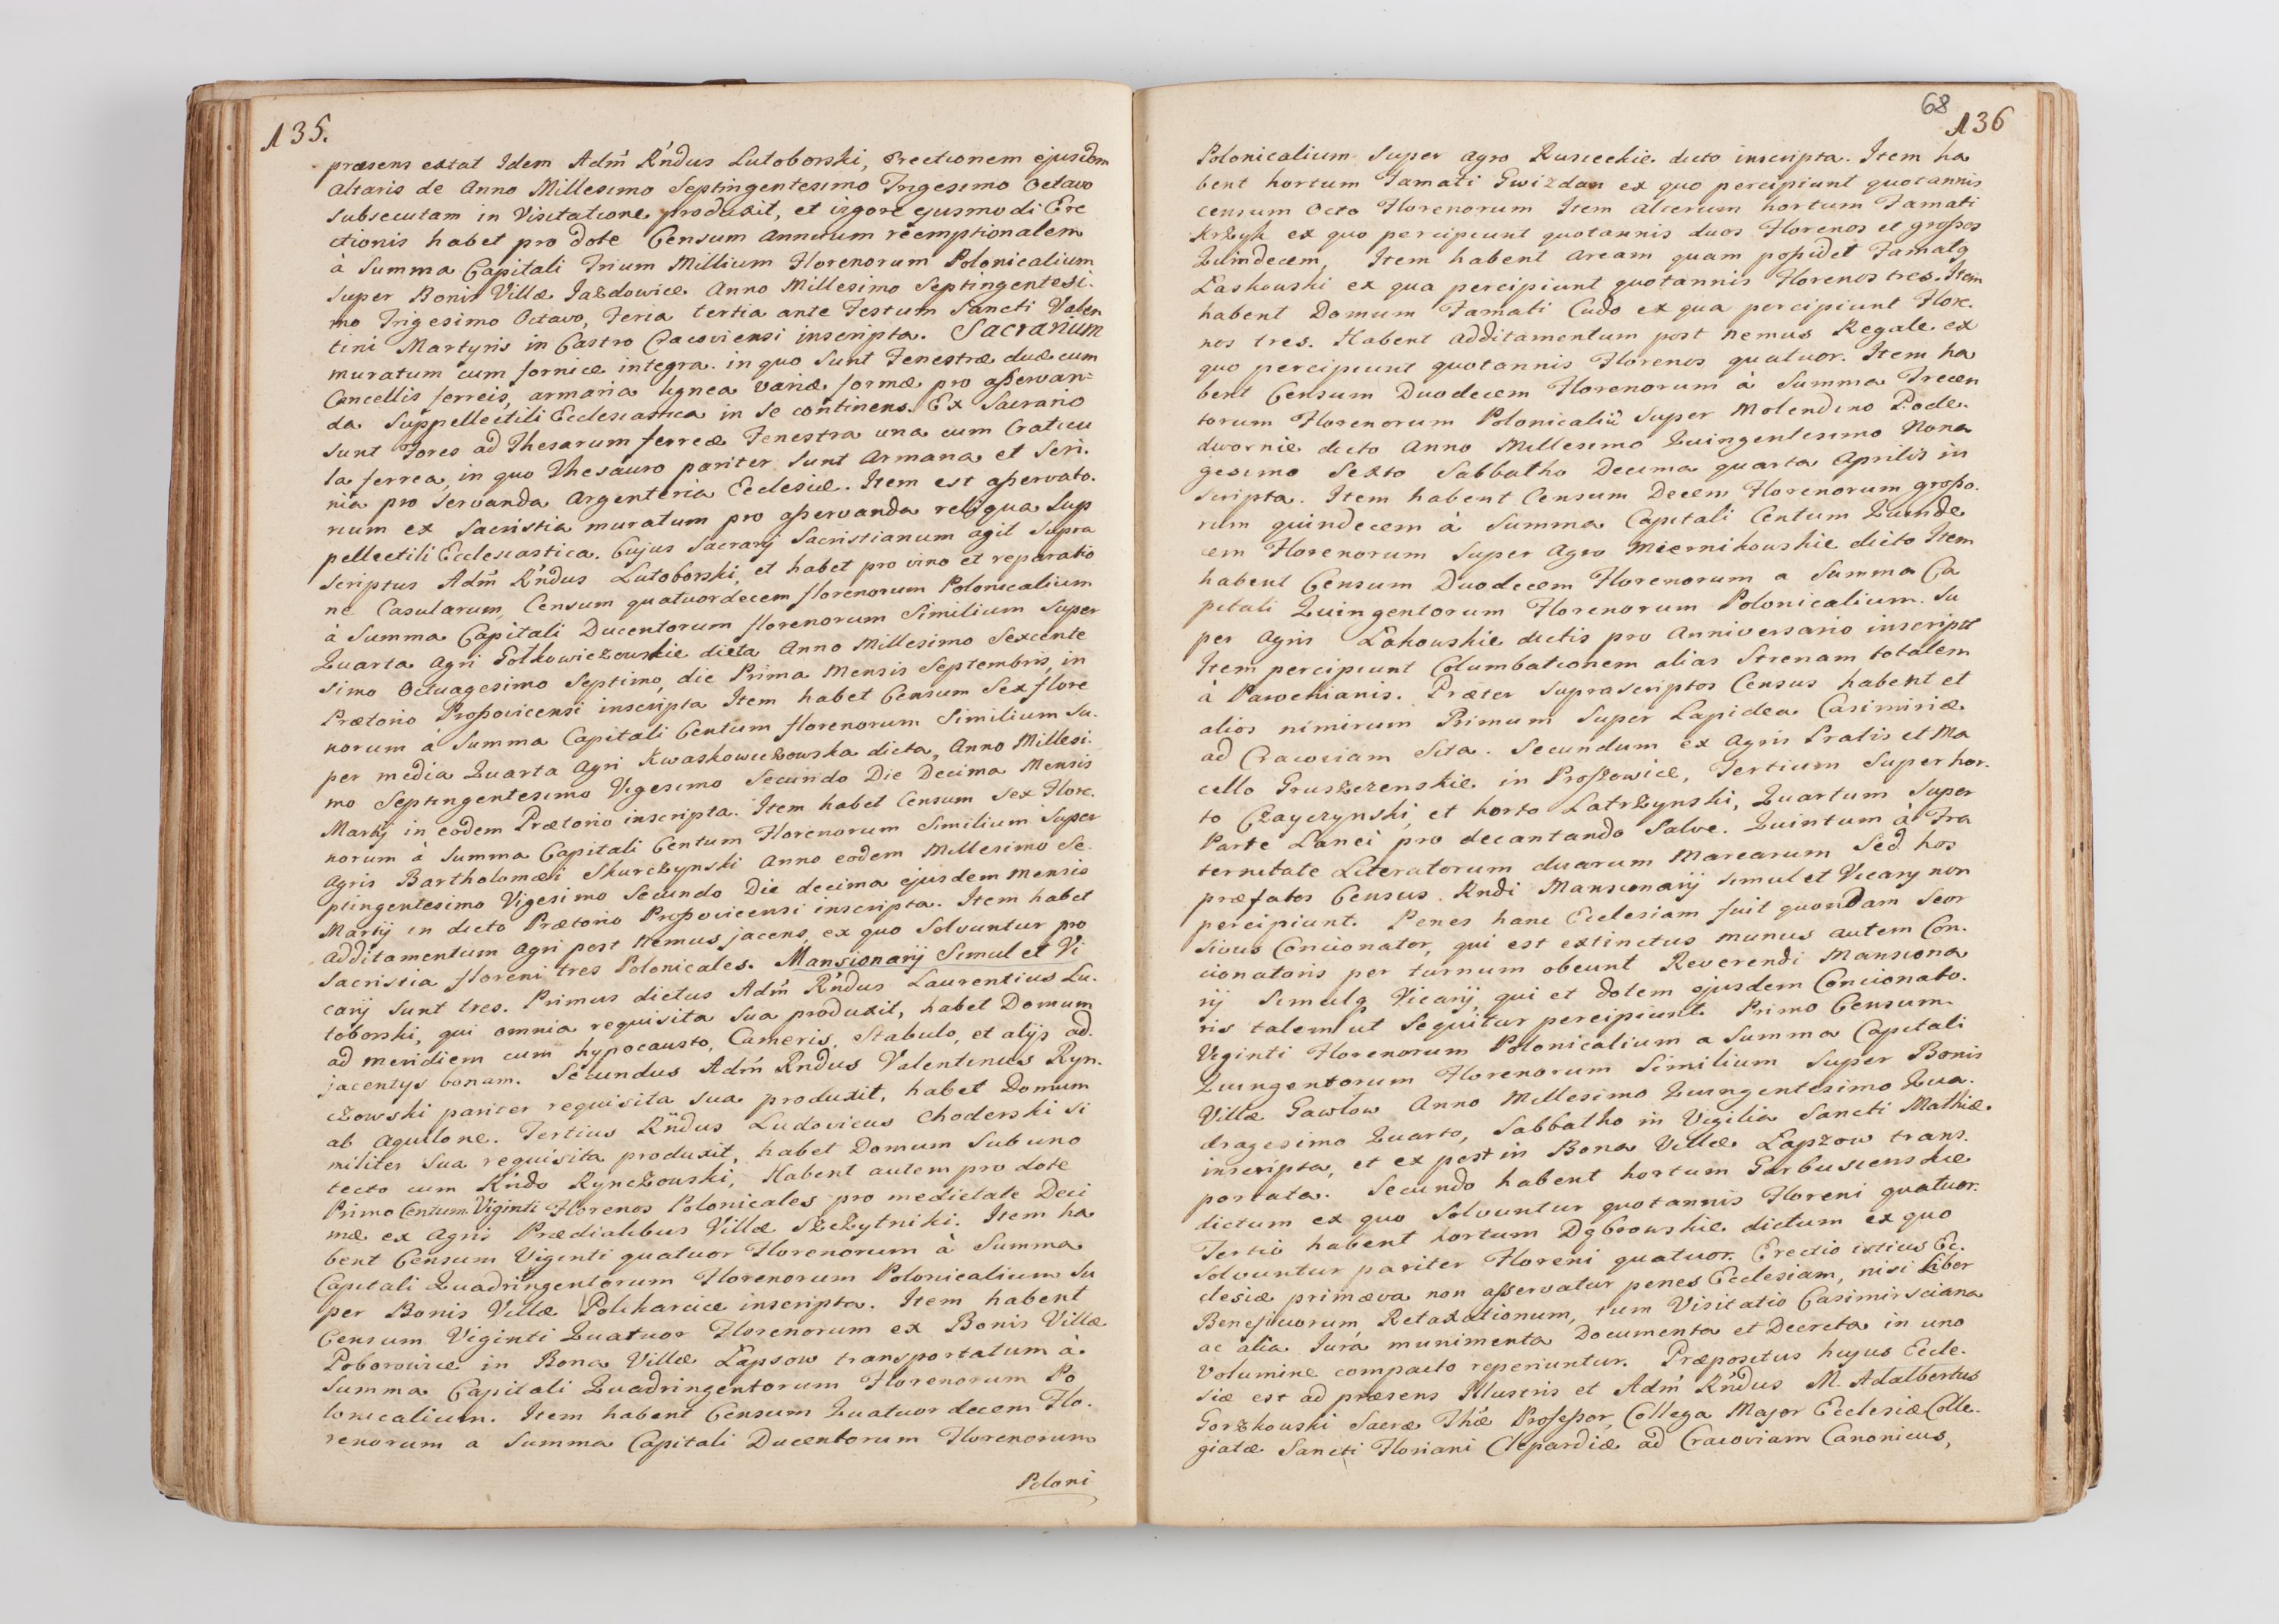 135.
præsens extat Idem Adm̃ Rńdus Lutoborski, erectionem ejusdem
altaris de Anno Millesimo Septingentesimo Trigesimo Octavo
subsecutam in Visitatione produxit, et vigore ejusmodi Ere
ctionis habet pro dote Censum annuum reemptionalem
à Summa Capitali Trium Millium Florenorum Polonicalium
super Bonis Villæ Jazdowice Anno Millesimo Septingentesi-
mo Trigesimo Octavo, Feria tertia ante Festum Sancti Valen
tini Martyris in Castro Cracoviensi inscripta. Sacrarium
muratum cum fornice integra. in quo sunt Fenestræ duæ cum
Cancellis ferreis, armaria lignea variæ formæ pro asservan=
da Suppellectili Ecclesiastica in se continens. Ex Sacrario
sunt Fores ad Thesarum ferreæ Fenestra una cum Craticu
la ferrea, in quo Thesauro pariter sunt armaria et Scri.
nia pro servanda argenteria Ecclesiæ. Item est asservato.
rium ex Sacristia muratum pro asservanda reliqua Sup
pellectili Ecclesiastica. Cujus Sacrarij Sacristianum agit supra
scriptus Adm̃ Rńdus Lutoborski, et habet pro vino et reparatio
ne Casularum, Censum quatuordecem florenorum Polonicalium
à Summa Capitali Ducentorum florenorum Similium super
Quarta Agri Gołkowiczowskie dicta Anno Millesimo Sexcente
simo Octuagesimo Septimo, die Prima Mensis Septembris, in
Prætorio Prossovicensi inscripta Item habet Censum Sex flore
norum à Summa Capitali Centum florenorum Similium Su.
per media Quarta Agri Kwaskowiczowska dicta, Anno Millesi.
mo Septingentesimo Vigesimo Secundo Die Decima Mensis
Martij in eodem Prætorio inscripta. Item habet Censum Sex Flore.
norum à Summa Capitali Centum Florenorum Similium super
Agris Bartholomæi Skurczynski Anno eodem Millesimo Se.
ptingentesimo Vigesimo Secundo Die decima ejusdem Mensis
Martij in dicto Prætorio Prossovicensi inscripta. Item habet
additamentum agri post Nemus jacens, ex quo Solvuntur pro
Sacristia floreni tres Polonicales. Mansionarij Simul et Vi
carij sunt tres. Primus dictus Adm̃ Rńdus Laurentius Lu.
toborski, qui omnia requisita sua produxit, habet Domum
ad meridiem cum hypocausto, Cameris, Stabulo, et alijs ad.
jacentijs bonam. Secundus Adm̃ Rńdus Valentinus Ryn.
czowski pariter requisita sua produxit, habet Domum
ab Aquilone. Tertius Rńdus Ludovicus Choderski Si
militer sua requisita produxit, habet Domum Sub uno
tecto cum Rńdo Rynczowski, Habent autem pro dote
Primo Centum Viginti Florenos Polonicales pro medietate Deci
mæ ex Agris Prædialibus Villæ Szczytniki. Item ha
bent Censum Viginti quatuor Florenorum à Summa
Capitali Quadringentorum Florenorum Polonicalium Su
per Bonis Villæ Polekarcice inscripta. Item habent
Censum Viginti Quatuor Florenorum ex Bonis Villæ
Poborowice in Bona Villæ Łapsow transportatum à
Summa Capitali Quadringentorum Florenorum Po
lonicalium. Item habent Censum Quatuordecem Flo.
renorum a Summa Capitali Ducentorum Florenorum
Poloni
68
136
Polonicalium super agro Rusieckie dicto inscripta. Item ha
bent hortum Famati Gwizdan ex quo percipiunt quotannis
censum Octo Florenorum Item alterum hortum Famati
Krzyk ex quo percipiunt quotannis duos Florenos et grossos
Quindecem, Item habent aream quam possidet Famatq
Laskowski ex qua percipiunt quotannis Florenos tres. Item
habent Domum Famati Cudo ex qua percipiunt Flore.
nos tres. Habent additamentum post nemus Regale ex
quo percipiunt quotannis Florenos quatuor. Item ha
bent Censum Duodecem Florenorum à Summa Trecen
torum Florenorum Polonicaliũ super Molendino Pode.
dwornie dicto Anno Millesimo Quingentesimo Nona
gesimo Sexto Sabbatho Decima quarta Aprilis in
scripta. Item habent Censum Decem Florenorum grosso.
rum quindecem à Summa Capitali Centum Quinde
cem Florenorum super Agro Miernikowskie dicto Item
habent Censum Duodecem Florenorum a Summa Ca
pitali Quingentorum Florenorum Polonicalium. Su
per agris Łakowskie dictis pro Anniversario inscripta
Item percipiunt Columbationem alias Strenam totalem
à Parochianis. Præter suprascriptos Census habent et
alios nimirum Primum super Lapidea Casimiriæ
ad Cracoviam Sita. Secundum ex Agris Pratis et Ma
cello Gruszczenskie in Proszowice, Tertium Super hor.
to Czayczynski, et horto Latrzynski, Quartum super
Parte Lanei pro decantando Salve. Quintum à Fra
ternitate Literatorum duarum Marcarum Sed hos
præfatos Census Rńdi Mansionarij simul et Vicarij non
percipiunt. Penes hanc Ecclesiam fuit quondam Seor
sivus Concionator, qui est extinctus munus autem Con.
cionatoris per turnum obeunt Reverendi Mansiona
rij Simulq Vicarij, qui et dotem ejusdem Concionato.
ris talem ut sequitur percipiunt. Primo Censum
Viginti Florenorum Polonicalium a Summa Capitali
Quingentorum Florenorum Similium super Bonis
Villæ Gawłow Anno Millesimo Quingentesimo Qua.
dragesimo Quarto, Sabbatho in Vigilia Sancti Mathiæ.
inscripta, et ex post in Bona Villæ Łapszow trans.
portata. Secundo habent hortum Garbuscenskie
dictum ex quo solvuntur quotannis Floreni quatuor.
Tertio habent hortum Dąbrowskie dictum ex quo
Solvuntur pariter Floreni quatuor. Erectio istius Ec.
clesiæ primæva non asservatur penes Ecclesiam, nisi Liber
Beneficiorum Retaxationum, tum Visitatio Casimirsciana
ac alia Jura munimenta Documenta et Decreta in uno
volumine compacto reperiuntur. Præpositus hujus Eccle.
siæ est ad præsens Illustris et Adm̃ Rńdus M. Adalbertus
Gorzkowski Sacræ Thæ Professor, Collega Major Ecclesiæ Colle.
giatæ Sancti Floriani Clepardiæ ad Cracoviam Canonicus,